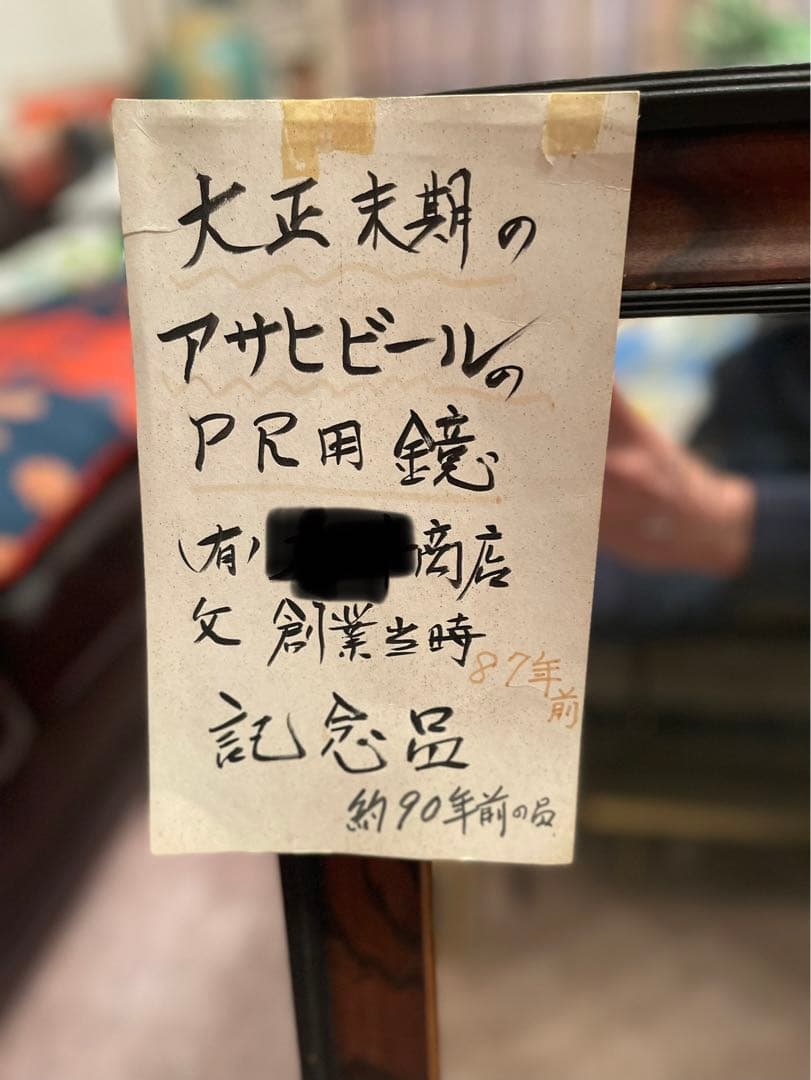 大正末期の
アサヒビールの
PR用鏡
(有) 商店
父 創業当時
87年前
記念品
約90年前の品